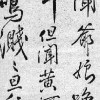 聞爺娘
但聞黃河
鳴濺〻旦